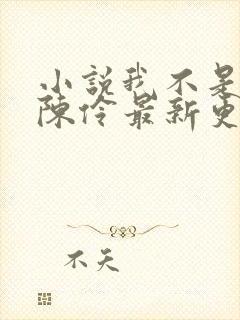 小說我不是
陳伶最新更
不天